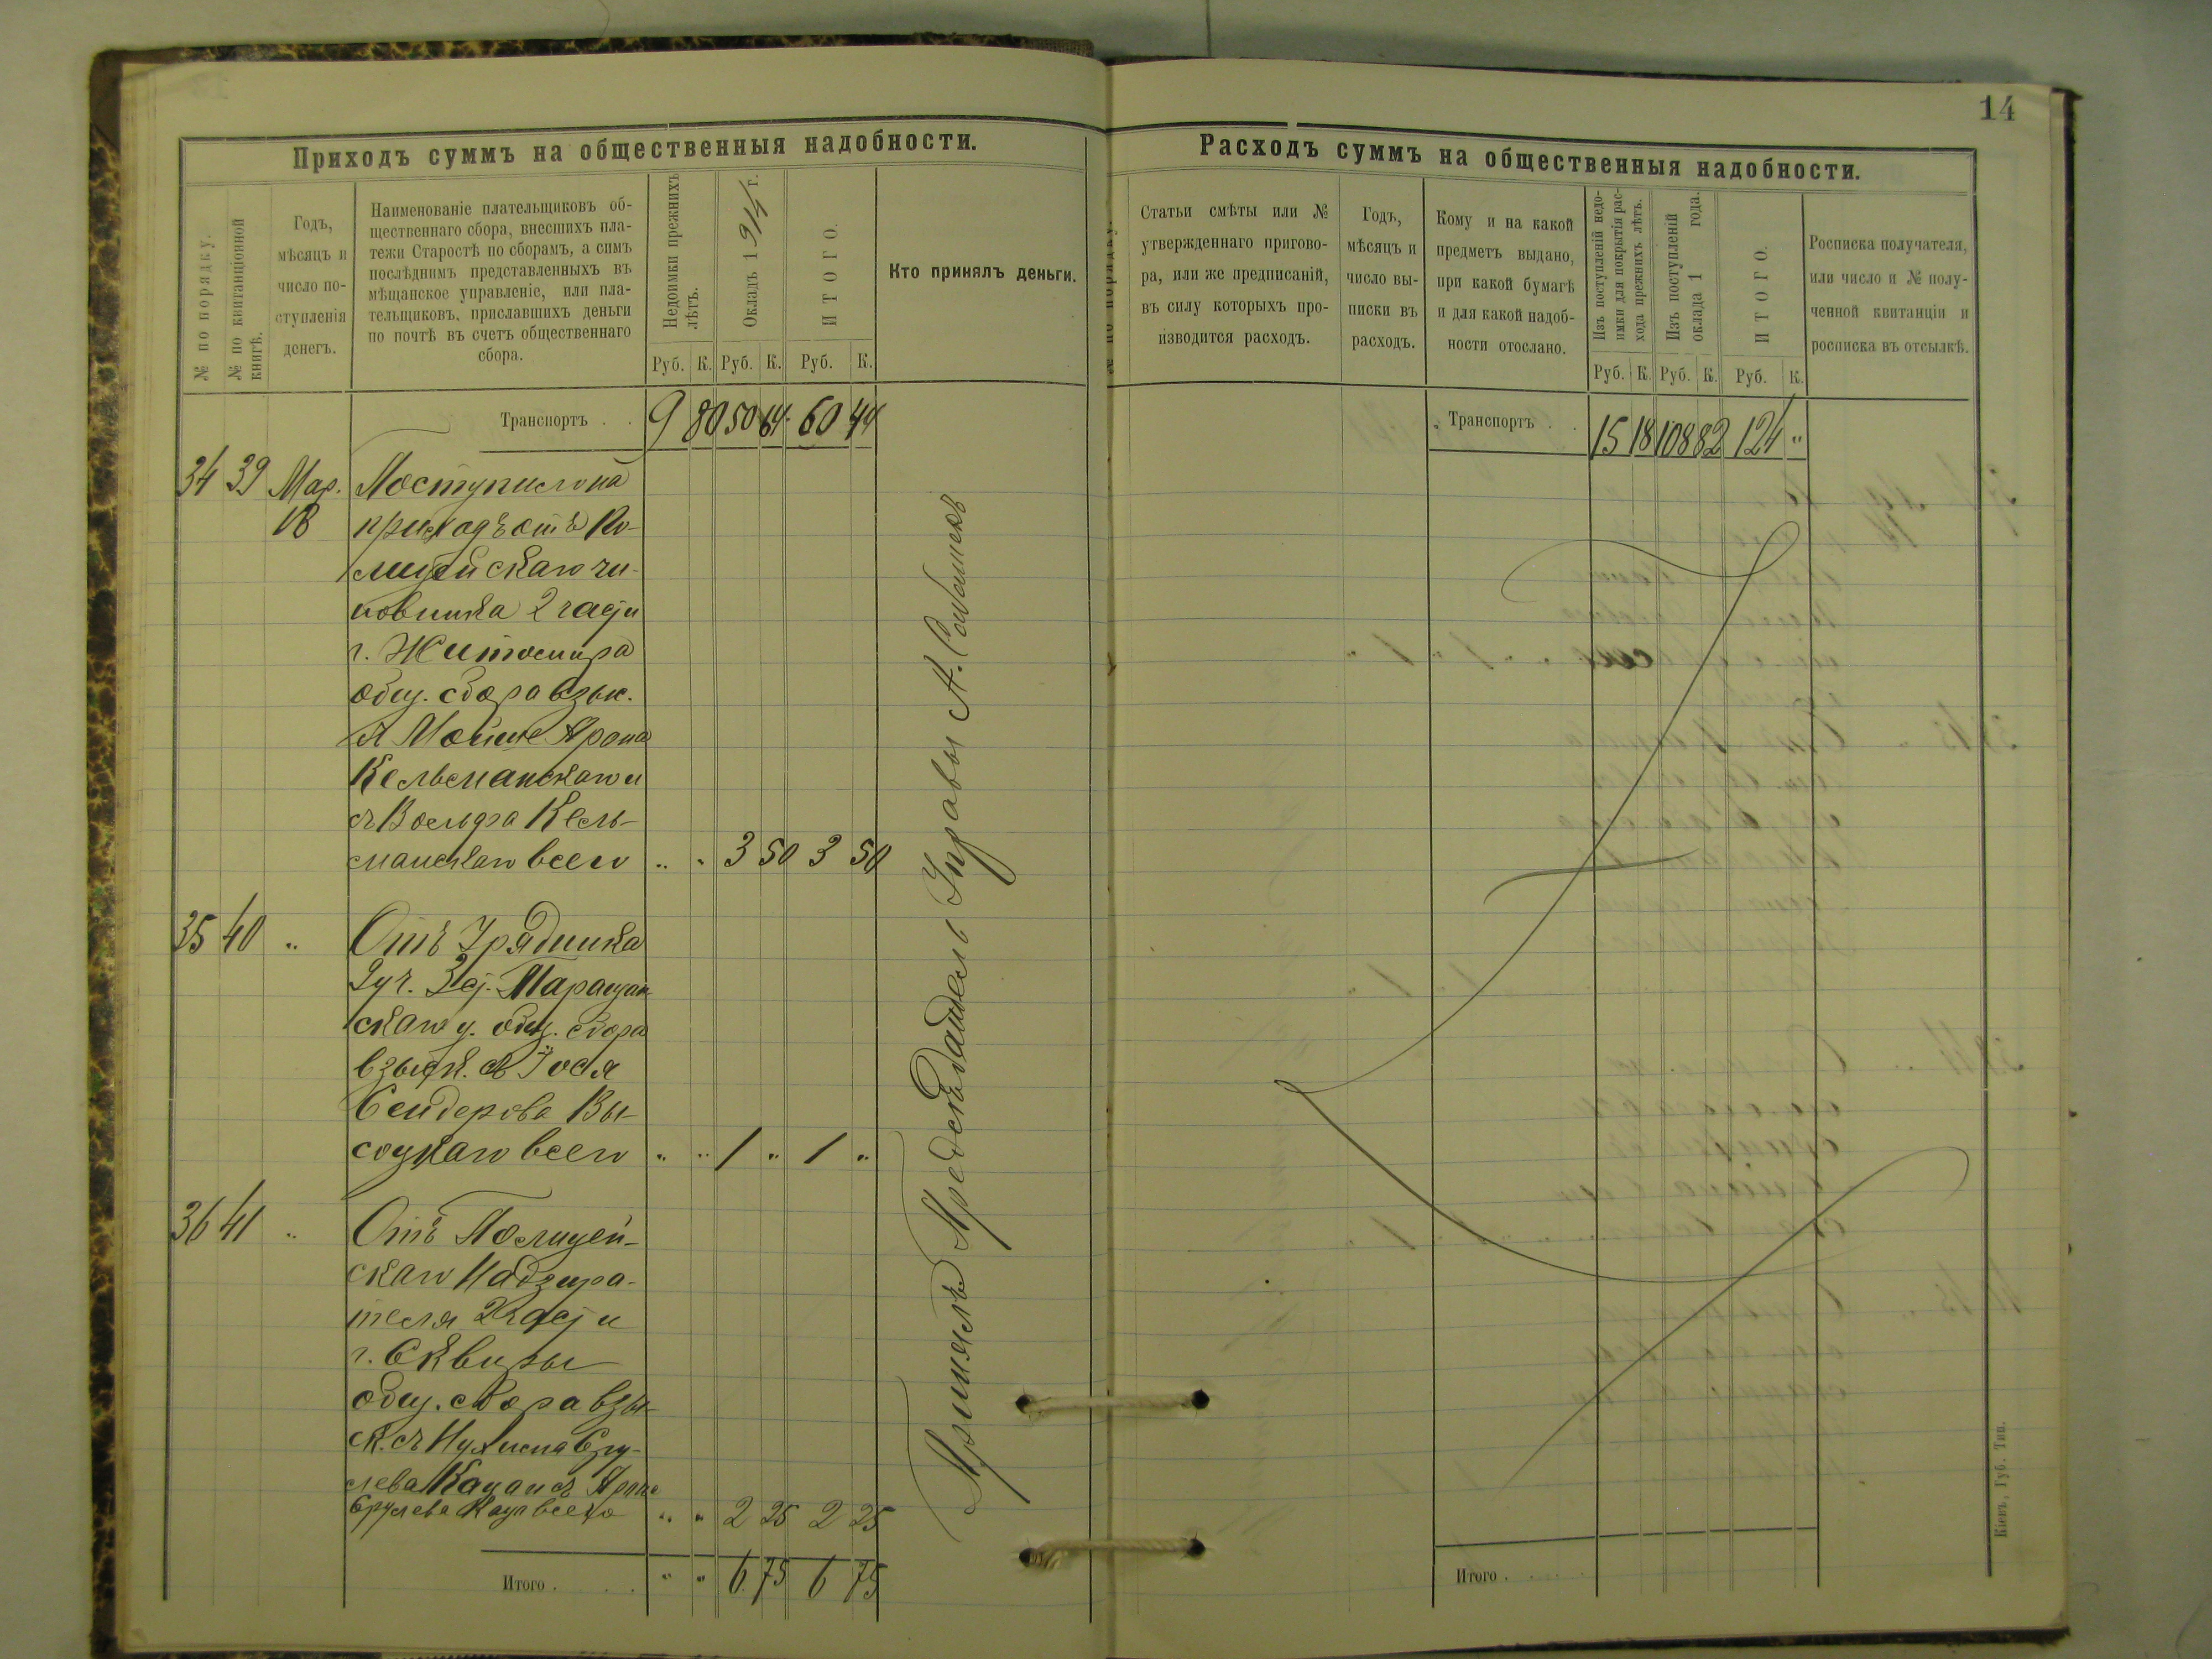 14
Приходъ суммъ на общественныя надобности.
№ по порядку.
№ по квитанціонной книгѣ.
Годъ,
мѣсяцъ и
число по-
ступленія
денегъ.
Наименованіе плательщиковъ об-
щественнаго сбора, внесшихъ пла-
тежи Старостѣ по сборамъ, а симъ
послѣднимъ представленныхъ въ
мѣщанское управленіе, или пла-
тельщиковъ, приславшихъ деньги
по почтѣ въ счетъ общественнаго
сбора.
Недоимки прежнихъ лѣтъ.
Окладъ 1914 г.
ИТОГО.
Кто принялъ деньги.
Руб. К. Руб. К. Руб. К.
Транспортъ . . 9 80 50 64 60 44
34 39 Мар. Поступило на
18 приходъ отъ По-
лицейскаго чи-
новника 2 части
г. Житомира
общ. сбора взыс.
съ Мойше Арона
Кельманскаго и
съ Вольфа Кель-
манскаго всего " " 3 50 3 50
35 40 " Отъ Урядника
2 уч. 3 ст. Таращан
скаго у. общ. сбора
взыск. съ Іося
Сендерова Вы-
соцкаго всего " " 1 " 1 "
36 41 " Отъ Полицей-
скаго Надзира-
теля 2 части
г. Сквиры
общ. сбора взы-
ск. съ Нухима Сру-
лева Кацапъ Арона
Срулева Кацап всего " " 2 25 2 25
Итого . . . " " 6 75 6 75
Принялъ Предсѣдатель Управы А.
Расходъ суммъ на общественныя надобности.
№ по порядку.
Статьи смѣты или №
утвержденнаго пригово-
ра, или же предписаній,
въ силу которыхъ про-
изводится расходъ.
Годъ,
мѣсяцъ и
число вы-
писки въ
расходъ.
Кому и на какой
предметъ выдано,
при какой бумагѣ
и для какой надоб-
ности отослано.
Изъ поступленій недо-
имки для покрытія рас-
хода прежнихъ лѣтъ.
Изъ поступленій
оклада 1 года.
ИТОГО.
Росписка получателя,
или число и № полу-
ченной квитанціи и
росписка въ отсылкѣ.
Руб. К. Руб. К. Руб. К.
Транспортъ . . 15 18 108 82 124 "
Итого . . . . .
Кіевъ, Губ. Тип.